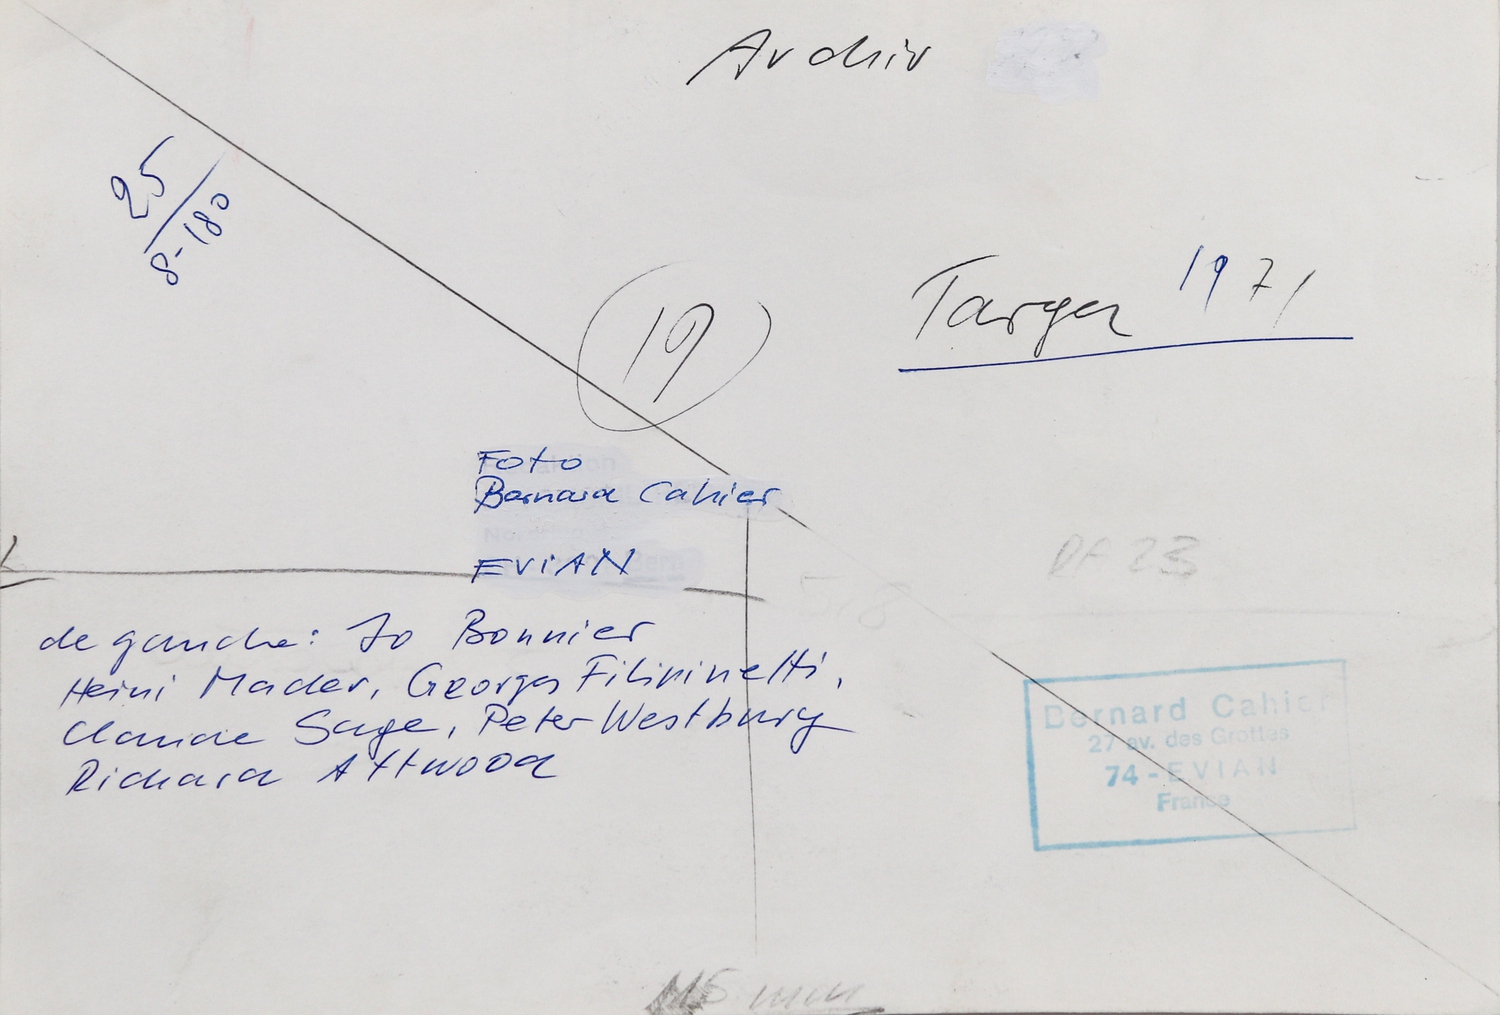 Archiv
25
8-180
Targa 1971
19
Foto
Bernard Cahier
EViAN
de gauche: Jo Bonnier
Heini Mader, Georges Filipinetti,
Claude Sage, Peter Westbury
Richard Attwood
Bernard Cahier
27 av. des Grottes
74 - EVIAN
France
115 mm